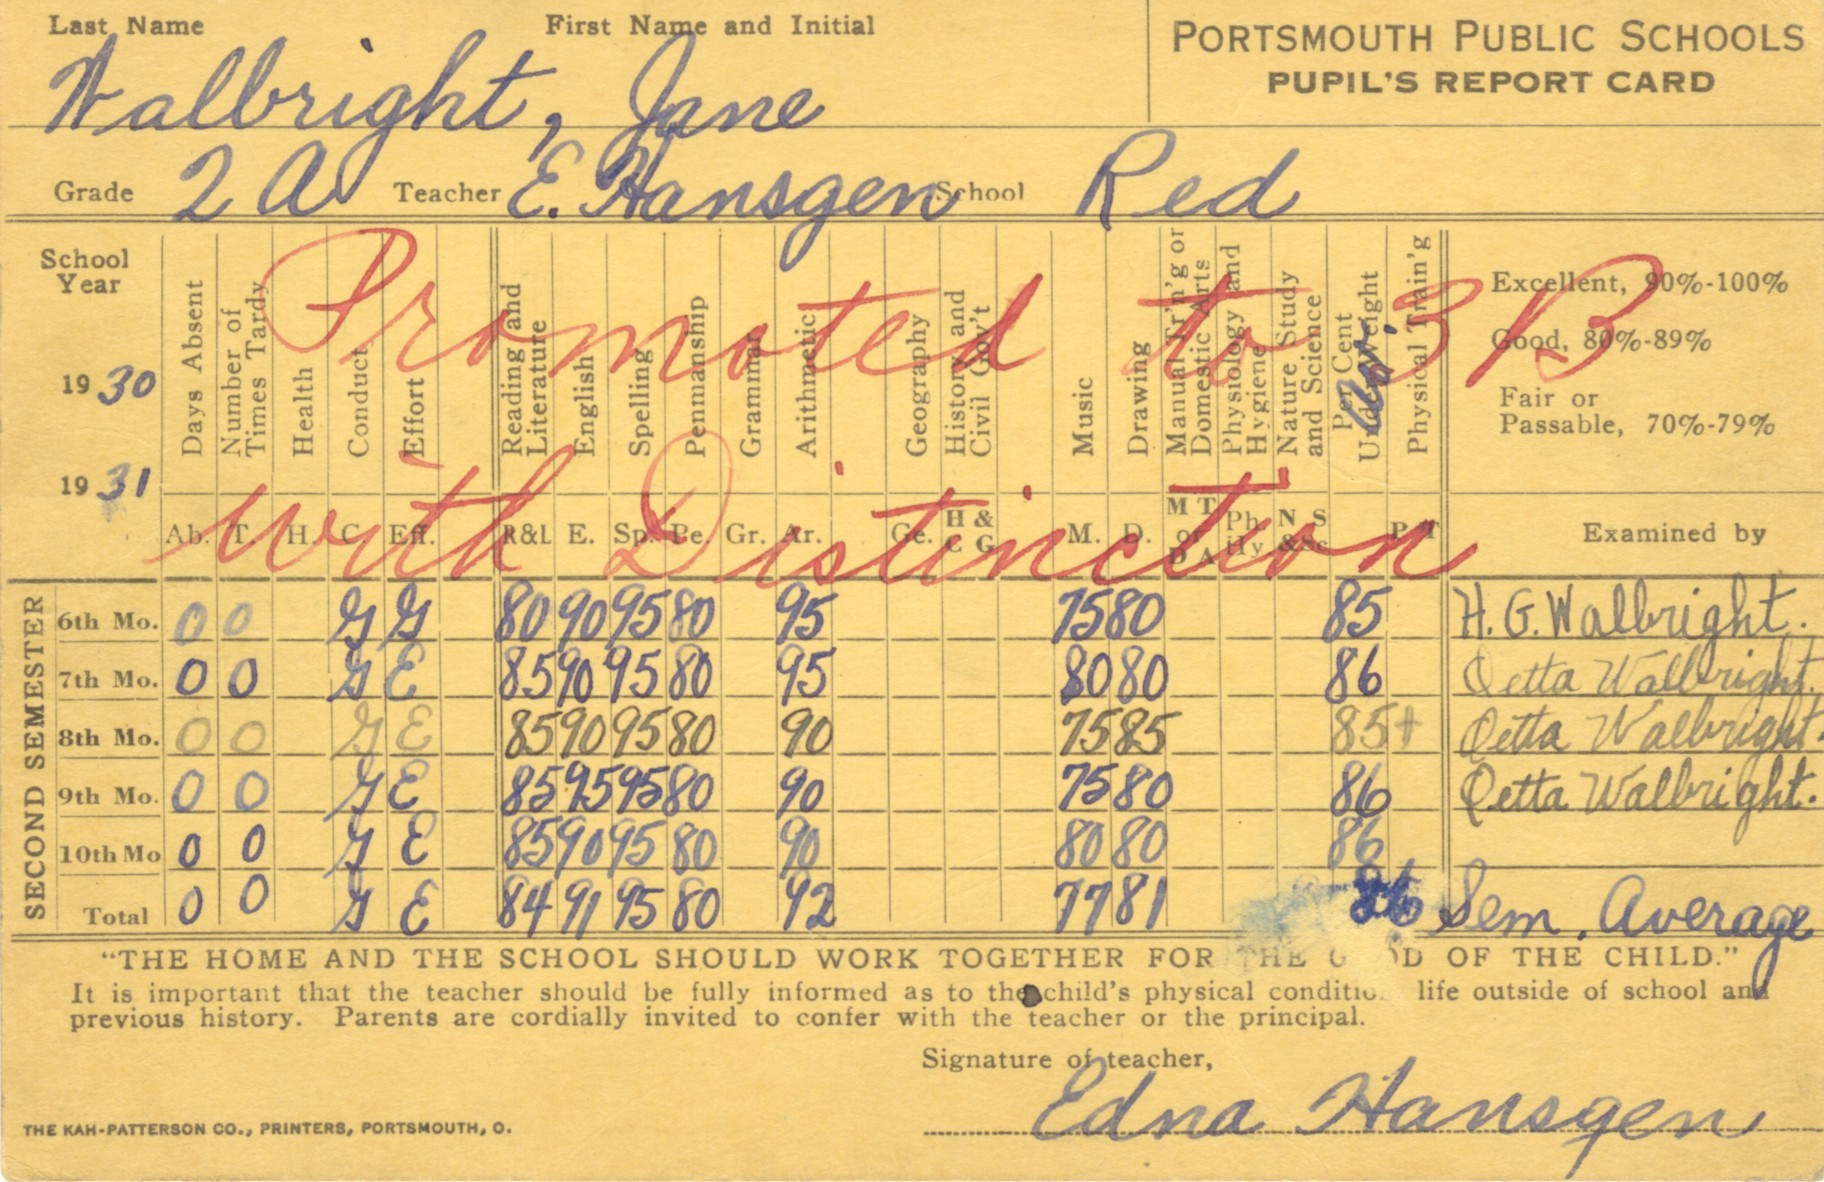 Last Name First Name and Initial
PORTSMOUTH PUBLIC SCHOOLS
PUPIL'S REPORT CARD
Walbright, Jane
Grade 2A Teacher E. Hansgen School Red
School Year
1930
1931
Days Absent
Number of Times Tardy
Health
Conduct
Effort
Reading and Literature
English
Spelling
Penmanship
Grammar
Arithmetic
Geography
History and Civil Gov't
Music
Drawing
Manual Tr'n'g or Domestic Arts
Physiology and Hygiene
Nature Study and Science
Per Cent Underweight
Physical Train'g
Promoted to 3B
with Distinction
Excellent, 90%-100%
Good, 80%-89%
Fair or
Passable, 70%-79%
Ab. T. H. C. Eff. R&L E. Sp. Pe. Gr. Ar. Ge. H & C G M. D. M T or D A Ph. Hy N S &Sc P T Examined by
SECOND SEMESTER
6th Mo. 0 0 G G 80 90 95 80 95 75 80 85 H. G. Walbright.
7th Mo. 0 0 G E 85 90 95 80 95 80 80 86 Oetta Walbright.
8th Mo. 0 0 G E 85 90 95 80 90 75 85 85+ Oetta Walbright.
9th Mo. 0 0 G E 85 95 95 80 90 75 80 86 Oetta Walbright.
10th Mo 0 0 G E 85 90 95 80 90 80 80 86
Total 0 0 G E 84 91 95 80 92 77 81 86 Sem. Average
"THE HOME AND THE SCHOOL SHOULD WORK TOGETHER FOR THE G OD OF THE CHILD."
It is important that the teacher should be fully informed as to the child's physical conditio life outside of school and
previous history. Parents are cordially invited to confer with the teacher or the principal.
Signature of teacher,
Edna Hansgen
THE KAH-PATTERSON CO., PRINTERS, PORTSMOUTH, O.